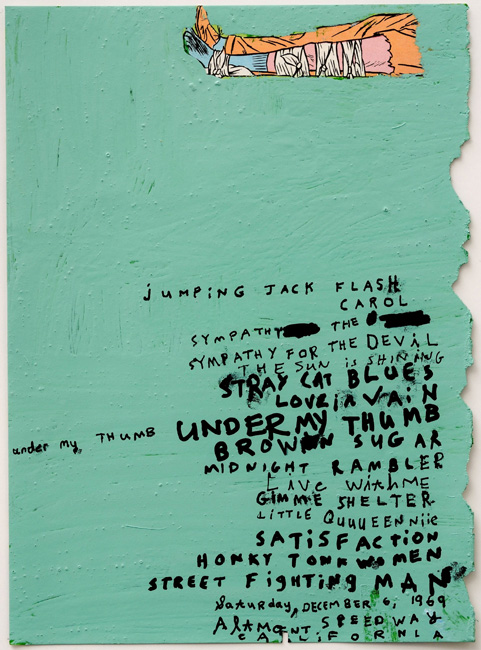 jUMPiNG JACK FLASH
CAROL
SYMPATHY THE
SYMPATHY FOR THE DEViL
THE SUN iS SHiNiNG
STRAY CAT BLUES
LOVE iN VAiN
under my THUMB UNDER MY THUMB
BROWN SUGAR
MiDNIGHT RAMBLER
Live withME
GiMME SHELTER
LiTTLE QUUUEENNiie
SATiSFACTiON
HONKY TONK WOMEN
STREET FiGHTiNG MAN
Saturday, DECEMBER 6, 1969
ALtAMONT SPEEDWAY
CALiFORNiA